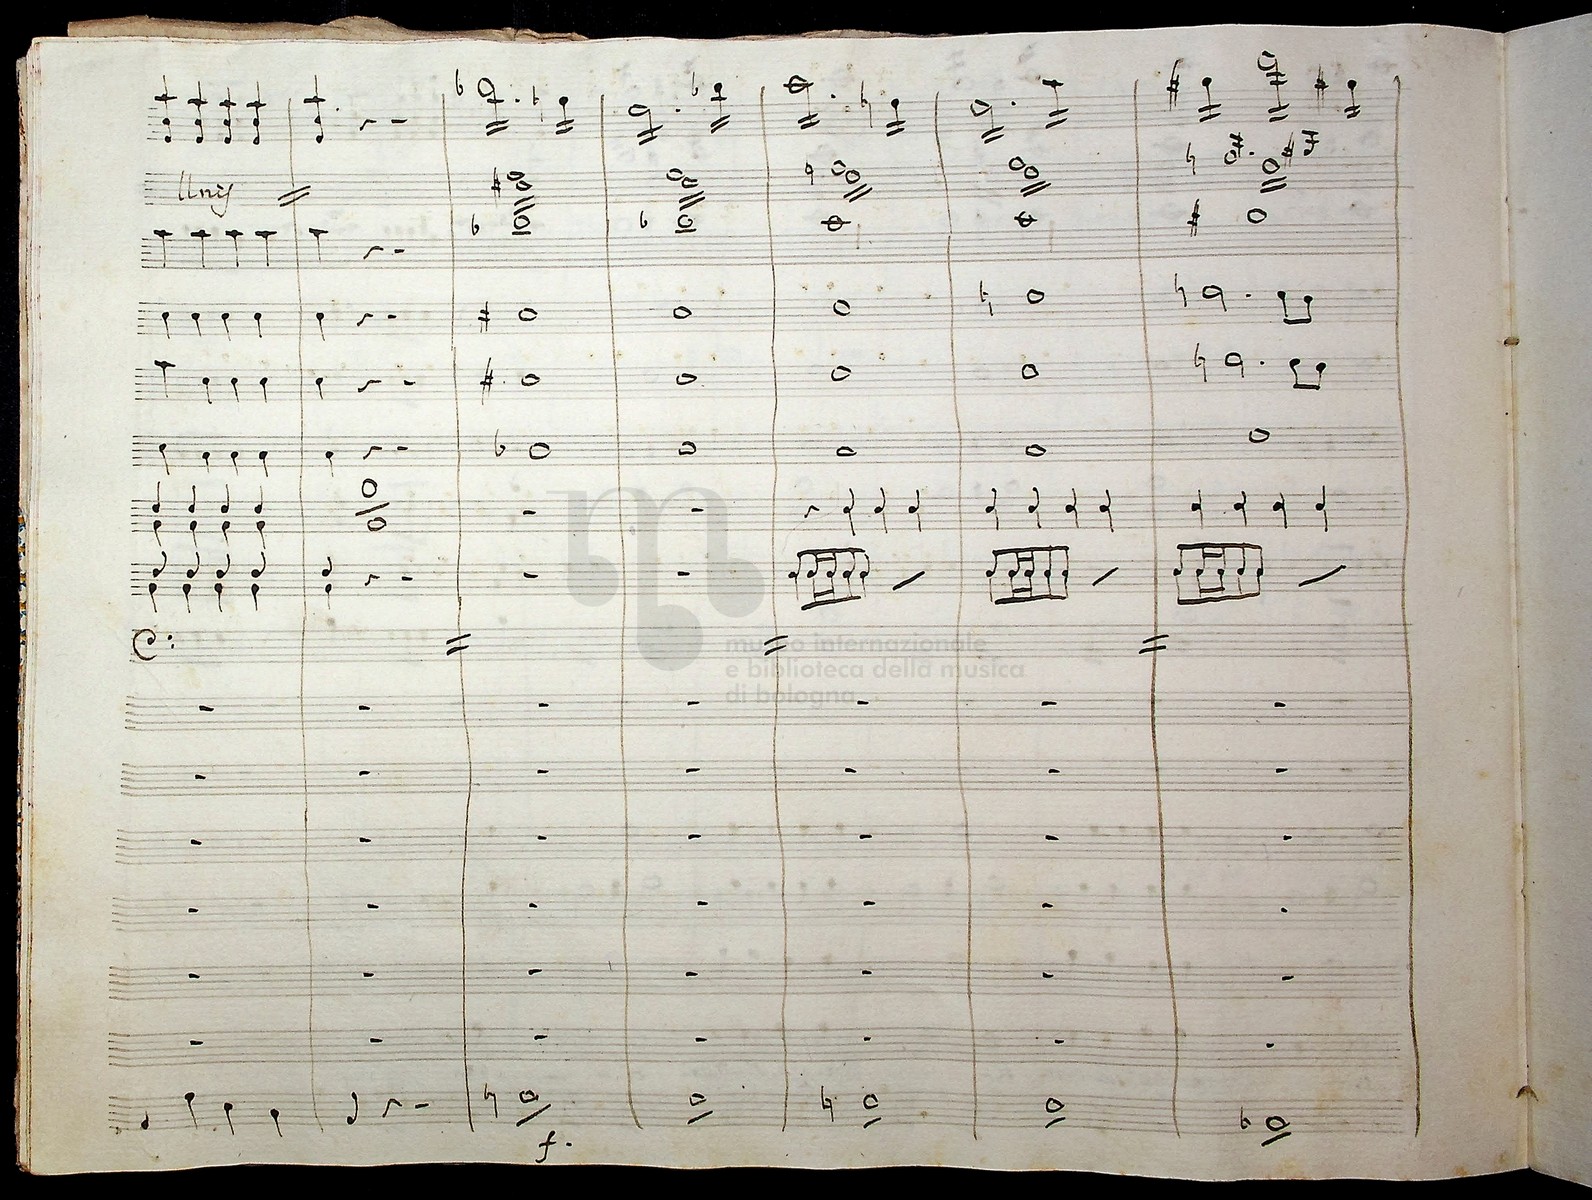 Unis
museo internazionale
e biblioteca della musica
di bologna
f.